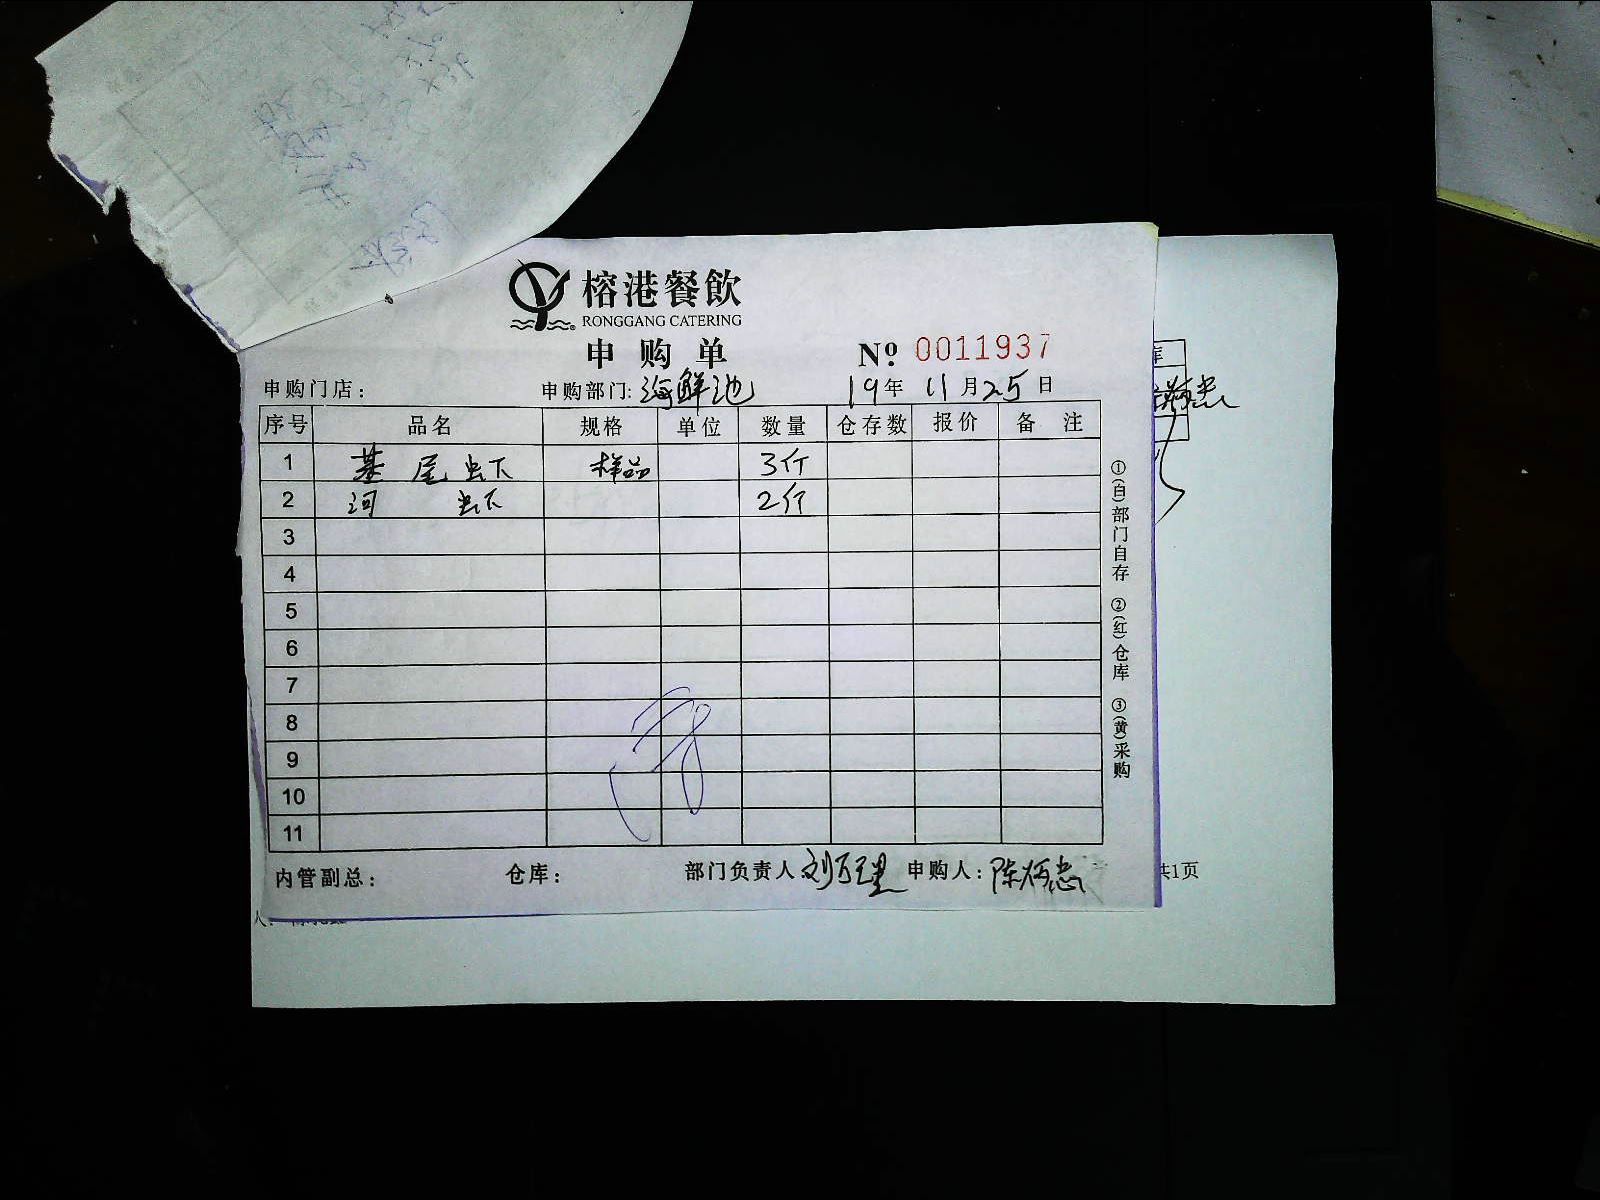 榕港餐飲
RONGGANG CATERING
申购单 Nº 0011937
申购门店： 申购部门: 海鲜池 19年 11月25日
序号 品名 规格 单位 数量 仓存数 报价 备 注
1 基尾虾 样品 3斤
2 河虾 2斤
3
4
5
6
7
8
9
10
11
①(白)部门自存 ②(红)仓库 ③(黄)采购
内管副总： 仓库： 部门负责人: 刘万里 申购人: 陈炳忠
库
共1页